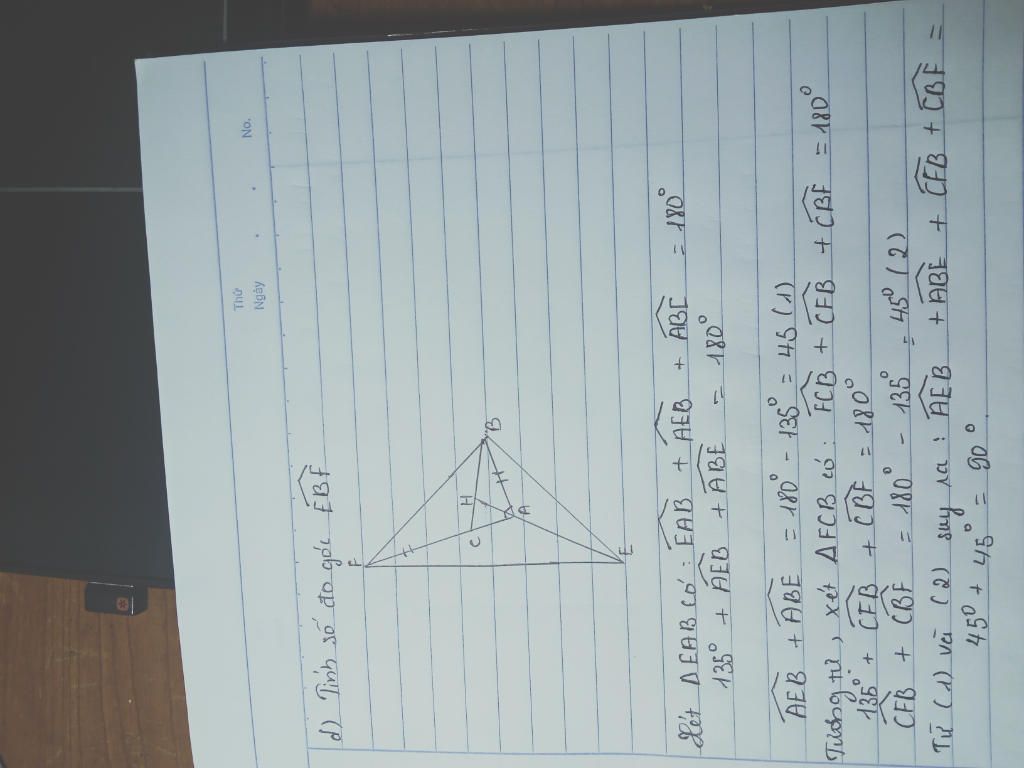 Thứ
Ngày
No.
d) Tính số đo góc EBF
F
C
H
B
A
E
Xét ΔEAB có: EAB + AEB + ABE = 180°
135° + AEB + ABE = 180°
AEB + ABE = 180° - 135° = 45 (1)
Tương tự, xét ΔFCB có: FCB + CFB + CBF = 180°
135° + CFB + CBF = 180°
CFB + CBF = 180° - 135° = 45° (2)
Từ (1) và (2) suy ra: AEB + ABE + CFB + CBF =
45° + 45° = 90°.